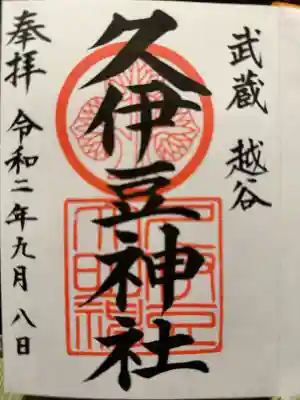 武蔵 越谷
久伊豆神社
奉拝 令和二年九月八日